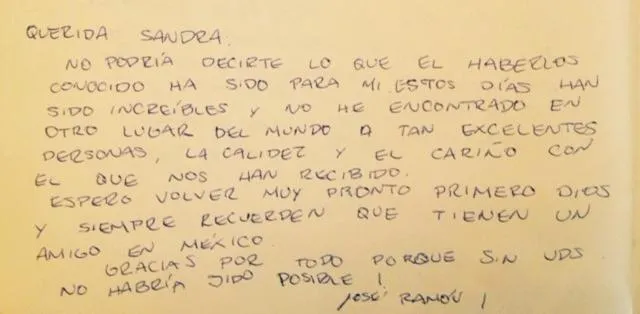 QUERIDA SANDRA.
NO PODRÍA DECIRTE LO QUE EL HABERLOS
CONOCIDO HA SIDO PARA MI ESTOS DÍAS HAN
SIDO INCREÍBLES Y NO HE ENCONTRADO EN
OTRO LUGAR DEL MUNDO A TAN EXCELENTES
PERSONAS, LA CALIDEZ Y EL CARIÑO CON
EL QUE NOS HAN RECIBIDO.
ESPERO VOLVER MUY PRONTO PRIMERO DIOS
Y SIEMPRE RECUERDEN QUE TIENEN UN
AMIGO EN MÉXICO.
GRACIAS POR TODO PORQUE SIN UDS
NO HABRÍA SIDO POSIBLE!
JOSÉ RAMÓN